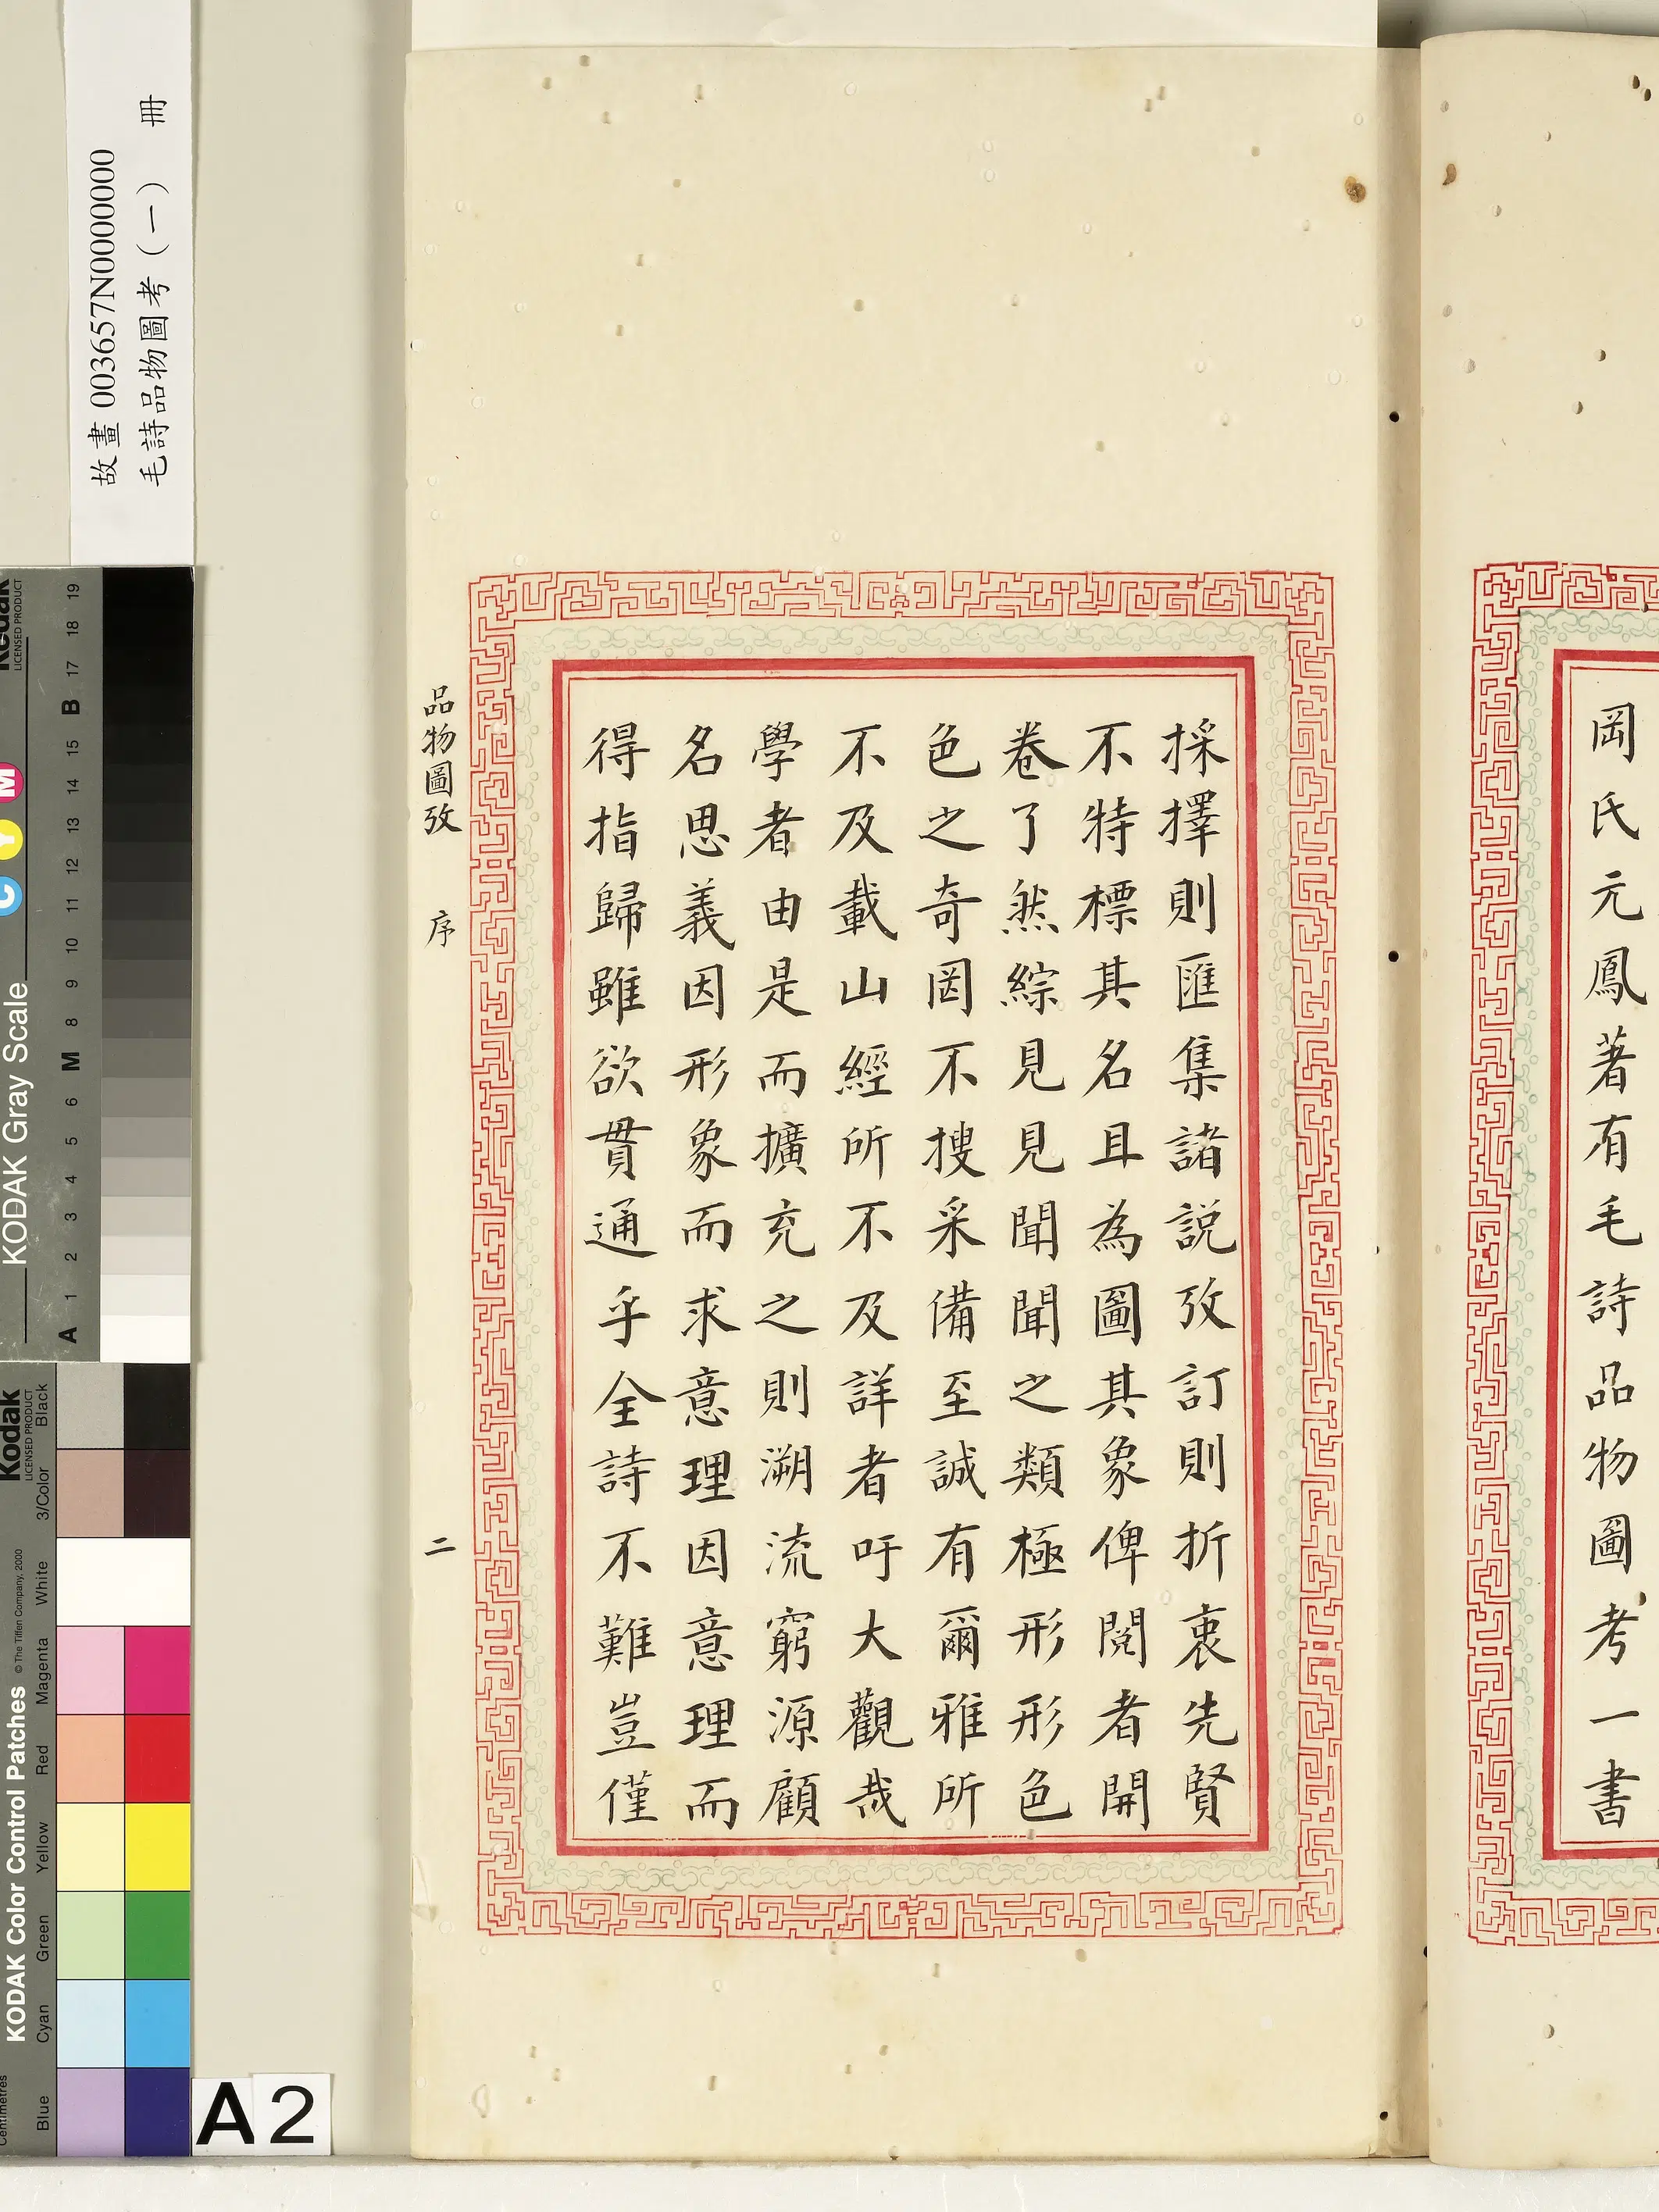 岡氏元鳳著有毛詩品物圖考一書
採擇則匯集諸說攷訂則折衷先賢
不特標其名且為圖其象俾閱者開
卷了然綜見見聞聞之類極形形色
色之奇罔不搜采備至誠有爾雅所
不及載山經所不及詳者吁大觀哉
學者由是而擴充之則溯流窮源顧
名思義因形象而求意理因意理而
得指歸雖欲貫通乎全詩不難豈僅
品物圖攷 序 二
故畫 003657N000000000
毛詩品物圖考（一） 冊
Kodak
LICENSED PRODUCT
KODAK Gray Scale
C Y M
A 1 2 3 4 5 6 M 8 9 10 11 12 13 14 15 B 17 18 19
Kodak
LICENSED PRODUCT
KODAK Color Control Patches © The Tiffen Company, 2000
Blue Cyan Green Yellow Red Magenta White 3/Color Black
Centimetres
A2